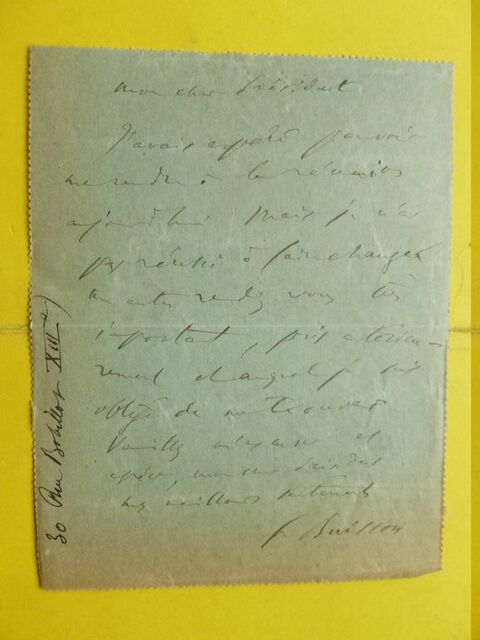 mon cher Président
J'avais espéré pouvoir
me rendre à la réunion
aujourd'hui mais je n'ai
pas réussi à faire changer
un autre rendez vous très
important, pris antérieu-
rement et auquel je suis
obligé de me trouver
Veuillez m'excuser et
agréer, mon cher Président
mes meilleurs sentiments
F Buisson
30 Rue Bobillot XIIIe)